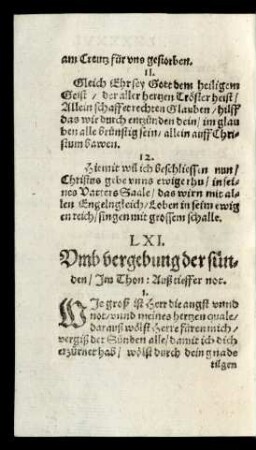 am Creutz für vns gestorben.
11.
Gleich Ehr sey Gott dem heiligem
Geist / der aller hertzen Tröster heist /
Allein schaffet rechten Glauben / hilff
das wir durch entzünden dein / im glau
ben alle brünstig sein / allein auff Chri-
stum bawen.
12.
Hiemit wil ich beschliessen nun /
Christus gebe vnns ewige rhu / in sei-
nes Vatters Saale / das wirn mit al-
len Engeln gleich / Loben in seim ewig
en reich / singen mit grossem schalle.
LXI.
Vmb vergebung der sün-
den / Im Thon: Auß tieffer not.
1.
WJe groß ist Herr die angst vnnd
not / vnnd meines hertzen quale /
darauß wölst Herre füren mich /
vergiß der Sünden alle / damit ich dich
erzürnet hab / wölst durch dein gnade
tilgen